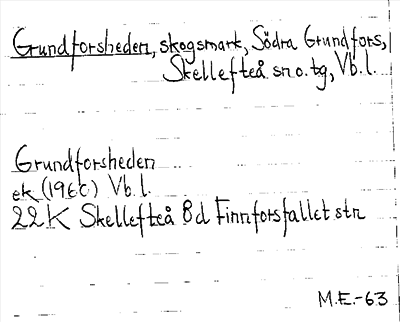 Grundforsheden, skogsmark, Södra Grundfors,
Skellefteå sn o. tg, Vb. l.
Grundforsheden
ek (1960) Vb. l.
22K Skellefteå 8d Finnforsfallet str
M.E.-63